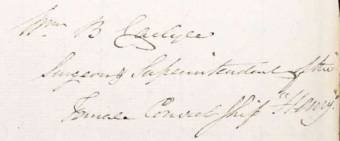 Wm B Carlyle
Surgeon & Superintendent of the
Female Convict Ship "Henry"